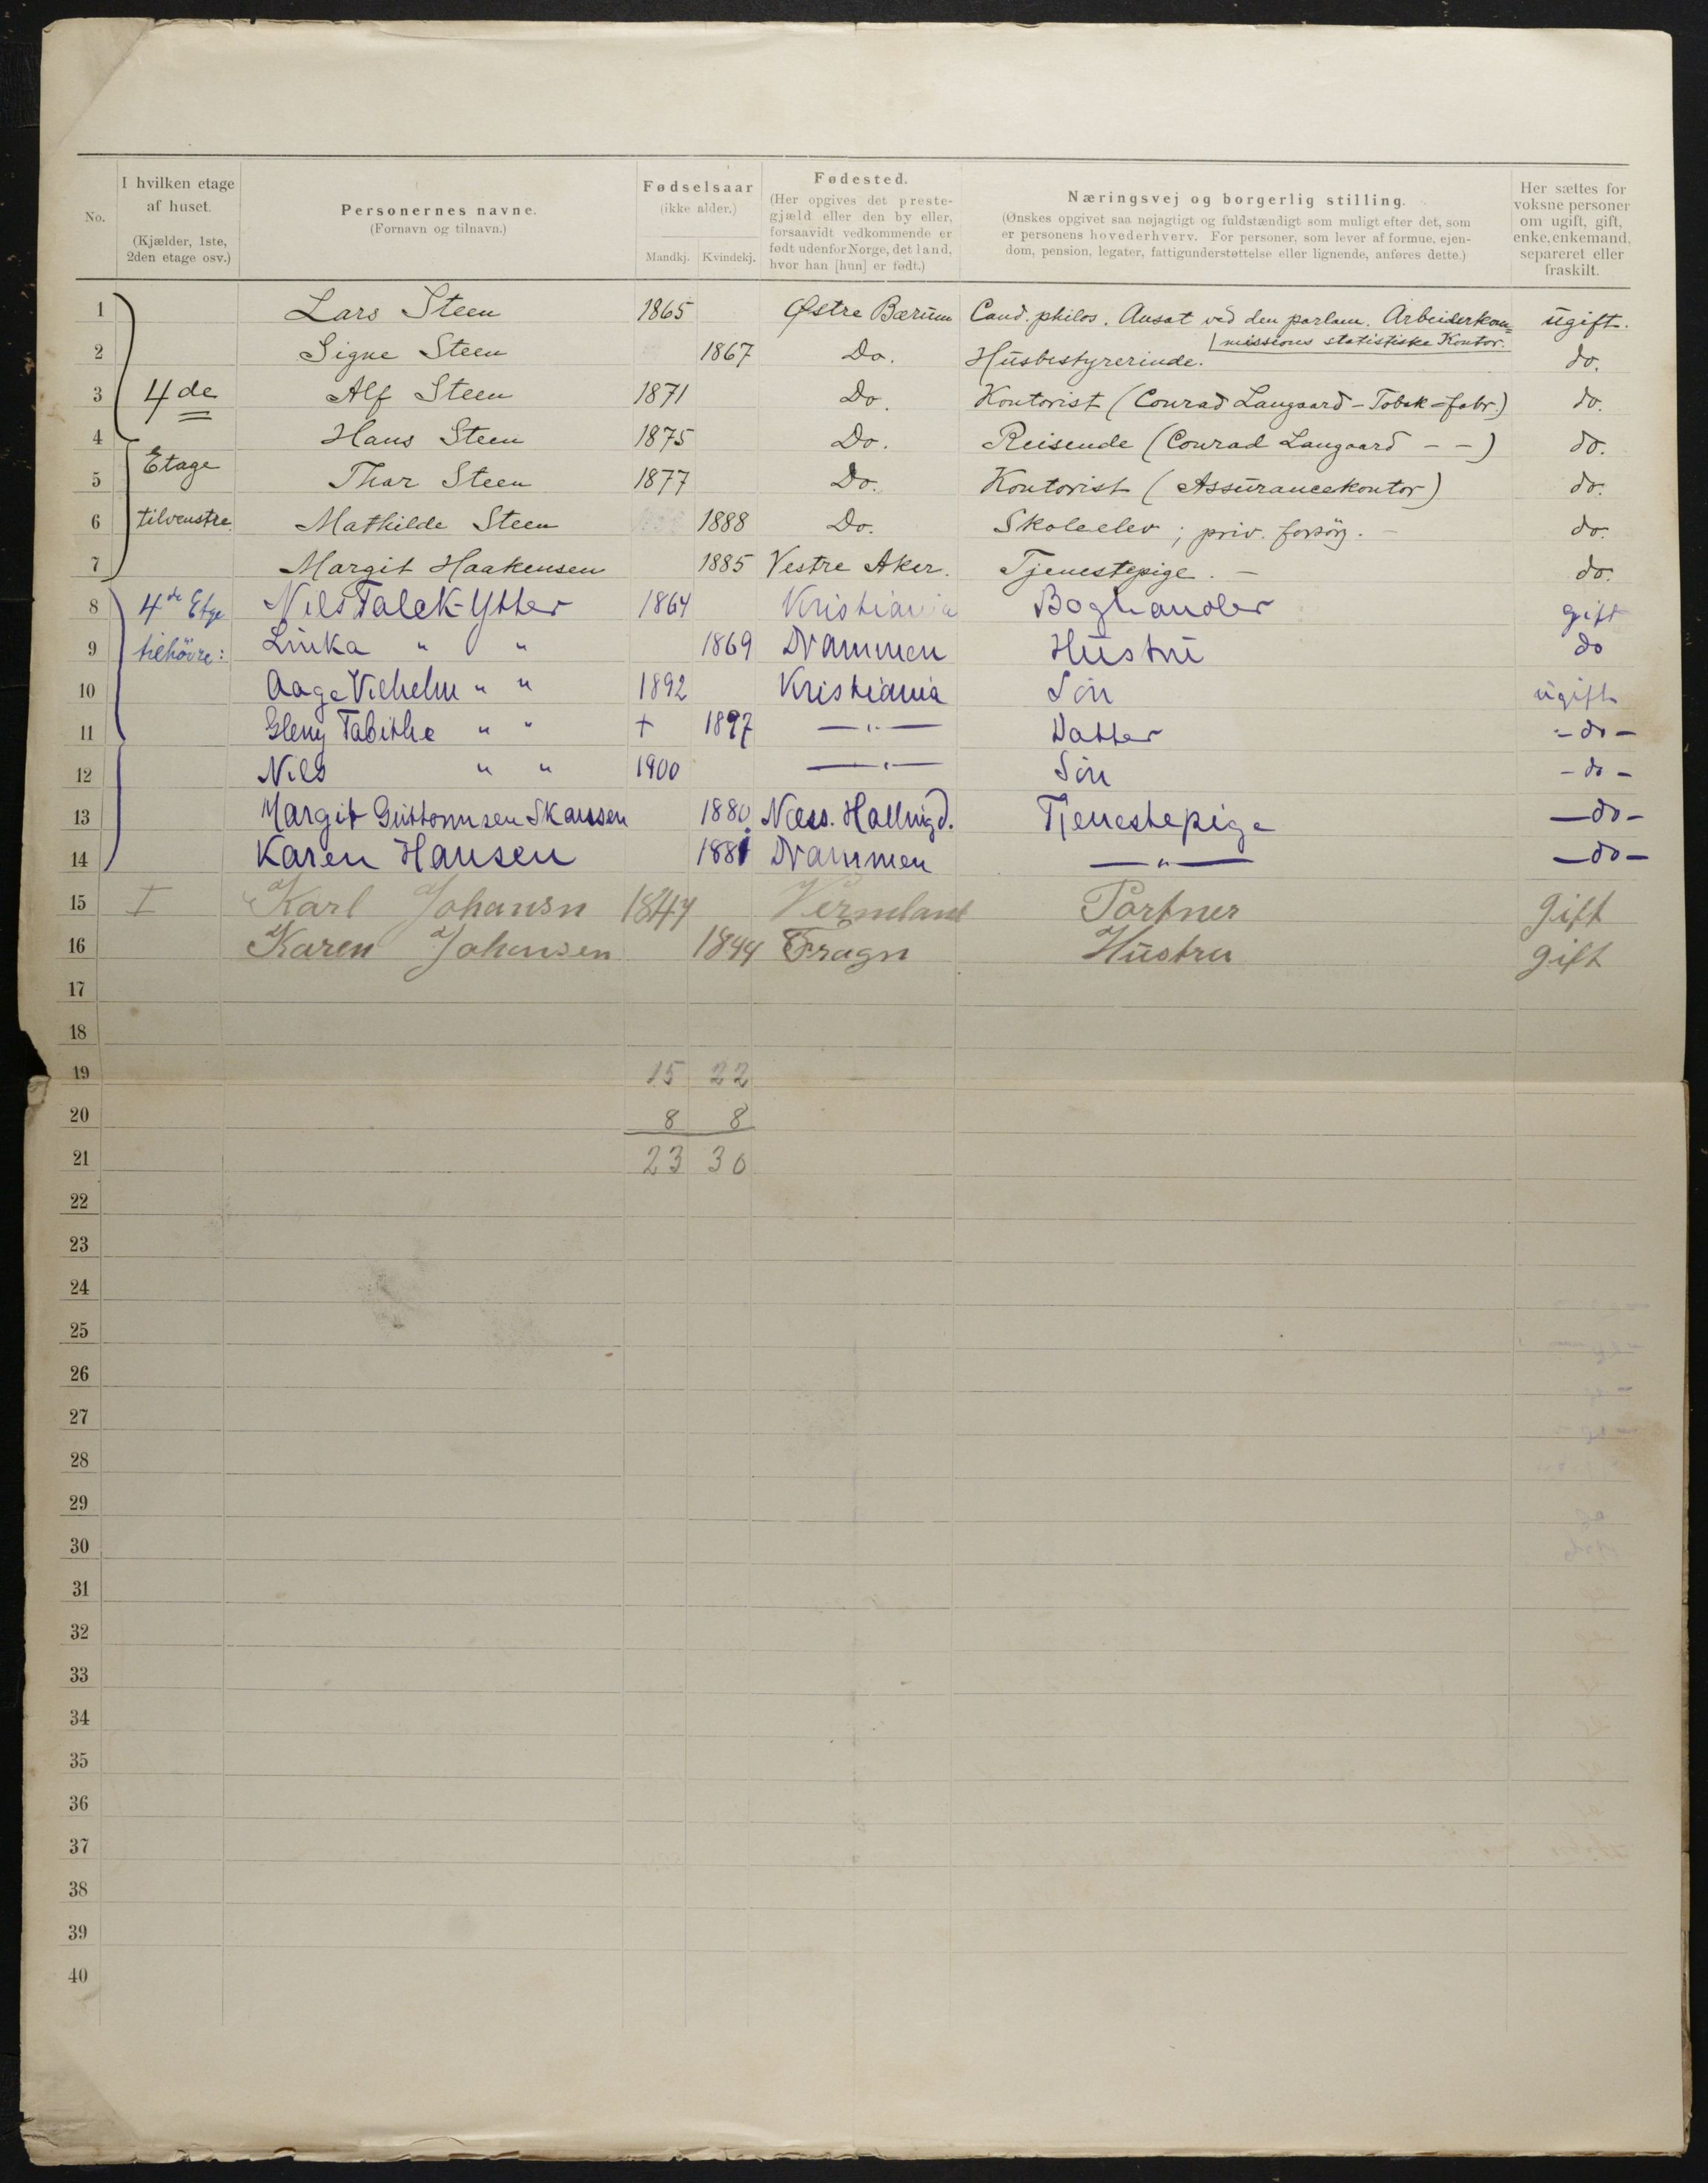 No. | I hvilken etage af huset. (Kjælder, 1ste, 2den etage osv.) | Personernes navne. (Fornavn og tilnavn.) | Fødselsaar (ikke alder.) Mandkj. Kvindekj. | Fødested. (Her opgives det prestegjæld eller den by eller, forsaavidt vedkommende er født udenfor Norge, det land, hvor han [hun] er født.) | Næringsvej og borgerlig stilling. (Ønskes opgivet saa nøjagtigt og fuldstændigt som muligt efter det, som er personens hovederhverv. For personer, som lever af formue, ejendom, pension, legater, fattigunderstøttelse eller lignende, anføres dette.) | Her sættes for voksne personer om ugift, gift, enke, enkemand, separeret eller fraskilt.
1 Lars Steen 1865 Østre Bærum Cand. philos. Ansat ved den parlam. Arbeiderkom= ugift.
missions statistiske Kontor.
2 Signe Steen 1867 Do. Husbestyrerinde. do.
3 4de Alf Steen 1871 Do. Kontorist (Conrad Langaard - Tobak=fabr.) do.
4 Hans Steen 1875 Do. Reisende (Conrad Langaard - -) do.
Etage
5 Thor Steen 1877 Do. Kontorist (Assurancekontor) do.
6 tilvenstre. Mathilde Steen 1888 Do. Skoleelev; priv. forsörg. - do.
7 Margit Haakensen 1885 Vestre Aker. Tjenestepige. - do.
8 4de Etge Nils Falck-Ytter 1864 Kristiania Boghandler gift
9 tilhöire: Linka " " 1869 Drammen Hustru do
10 Aage Vilhelm " " 1892 Kristiania Sön ugift
11 Gleny Tabithe " " + 1897 —"— Datter - do -
12 Nils " " 1900 —"— Sön - do -
13 Margit Guttormsen Skarssen 1880 Næss. Hallingd. Tjenestepige - do -
14 Karen Hansen 1881 Drammen —"— - do -
15 I Karl Johansn 1847 Vermland Portner gift
16 Karen Johansen 1844 Frogn Hustru gift
17
18
19 15 22
20 8 8
21 23 30
22
23
24
25
26
27
28
29
30
31
32
33
34
35
36
37
38
39
40